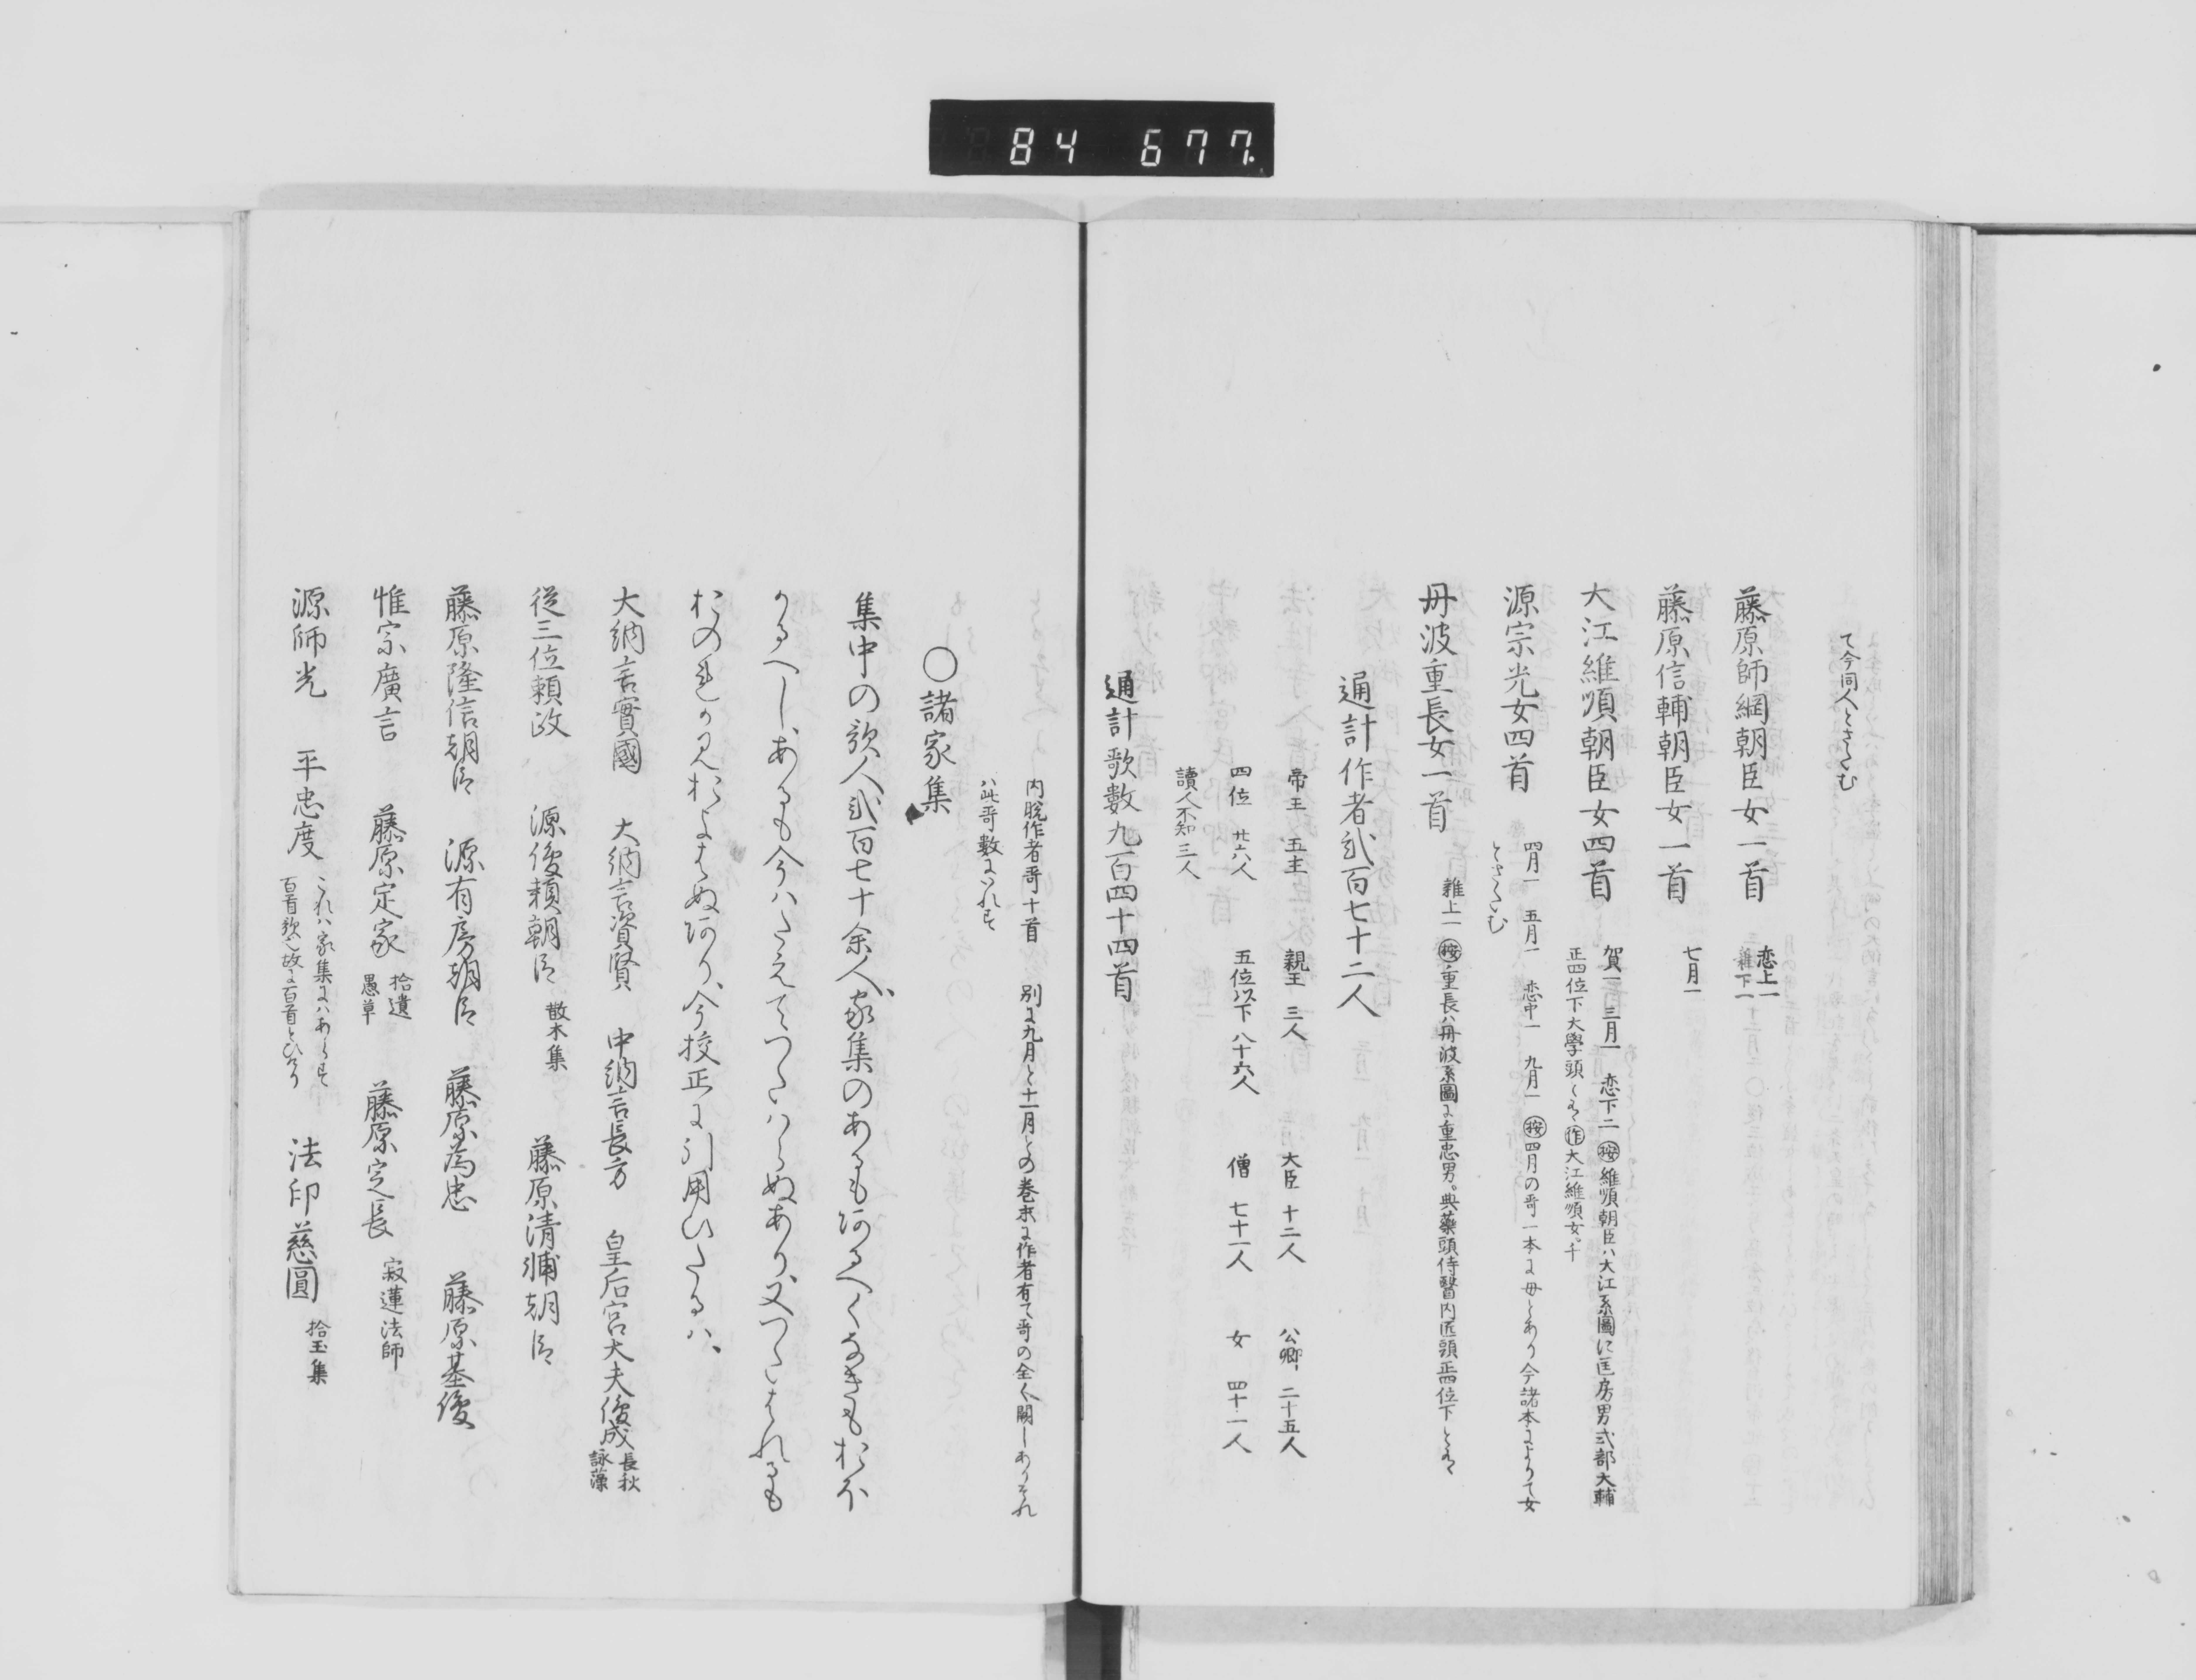 84 677.
て今同人とさたむ
藤原師綱朝臣女一首 恋上一 雜下一
藤原信輔朝臣女一首 七月一
大江維順朝臣女四首 賀一 三月一 恋下二 ㊟維順朝臣ハ大江系圖に匡房男式部大輔
正四位下大學頭とす 作大江維順女千
源宗光女四首 四月一 五月一 恋中一 九月一 按四月の哥一本に母とあり今諸本によりて女
とさたむ
丹波重長女一首 雜上一 按重長ハ丹波系圖に重忠男。典藥頭侍醫内匠頭正四位下とす
通計作者貳百七十二人
帝王 五主 親王 三人 大臣 十二人 公卿 二十五人
四位 廿六人 五位以下 八十六人 僧 七十一人 女 四十一人
讀人不知 三人
通計歌數九百四十四首
内脱作者哥十首 別に九月と十一月との巻末に作者有て哥の全く闕しありそれ
ハ此哥數にいれす
〇諸家集
集中の歌人貳百七十余人、家集のあるもあるへくなきもおほ
かるへし、あるも今ハたえてつたハらぬあり、又つたはれるも
おのれか見およはぬあり、今挍正に引用ひたるハ、
大納言實國 大納言資賢 中納言長方 皇后宮大夫俊成 長秋詠藻
従三位頼政 源俊頼朝臣 散木集 藤原清輔朝臣
藤原隆信朝臣 源有房朝臣 藤原為忠 藤原基俊
惟宗廣言 藤原定家 拾遺愚草 藤原定長 寂蓮法師
源師光 平忠度 これハ家集にハあらす百首歌也故に百首とひけり 法印慈圓 拾玉集